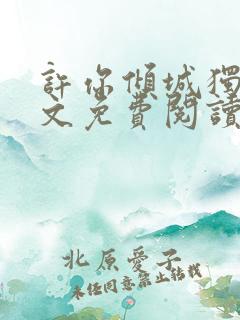 許你傾城獨
文免費閱讀
北原愛子
未經同意禁止轉載